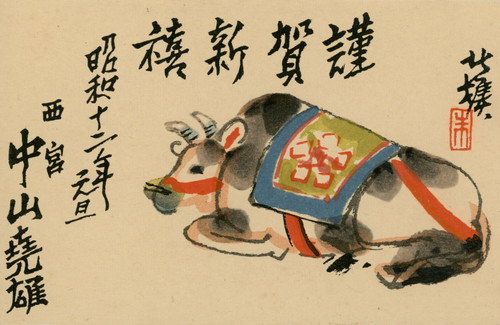 謹賀新禧
北樵
昭和十二年元旦
西宮
中山堯雄